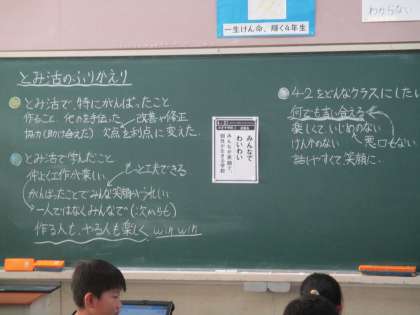 わからない
一生けん命、輝く4年生
とみ活のふりかえり
とみ活で、特にがんばったこと
作ること、化の手伝った 改善や修正
協力(助け合えた) 欠点を利点に変えた。
とみ活で学んだこと
仲よく工作が楽しい もっと工夫できる
がんばったことでみんな笑顔→うれしい
一人ではなくみんなで(次からも)
作る人も、やる人も楽しく、winwin
みんなで
わいわい
みんなが笑顔で、
個性が生きる学校
4-2をどんなクラスにした
何でも言い合える
楽しくていじめのない
けんかのない 悪口もない
話しやすくて笑顔に